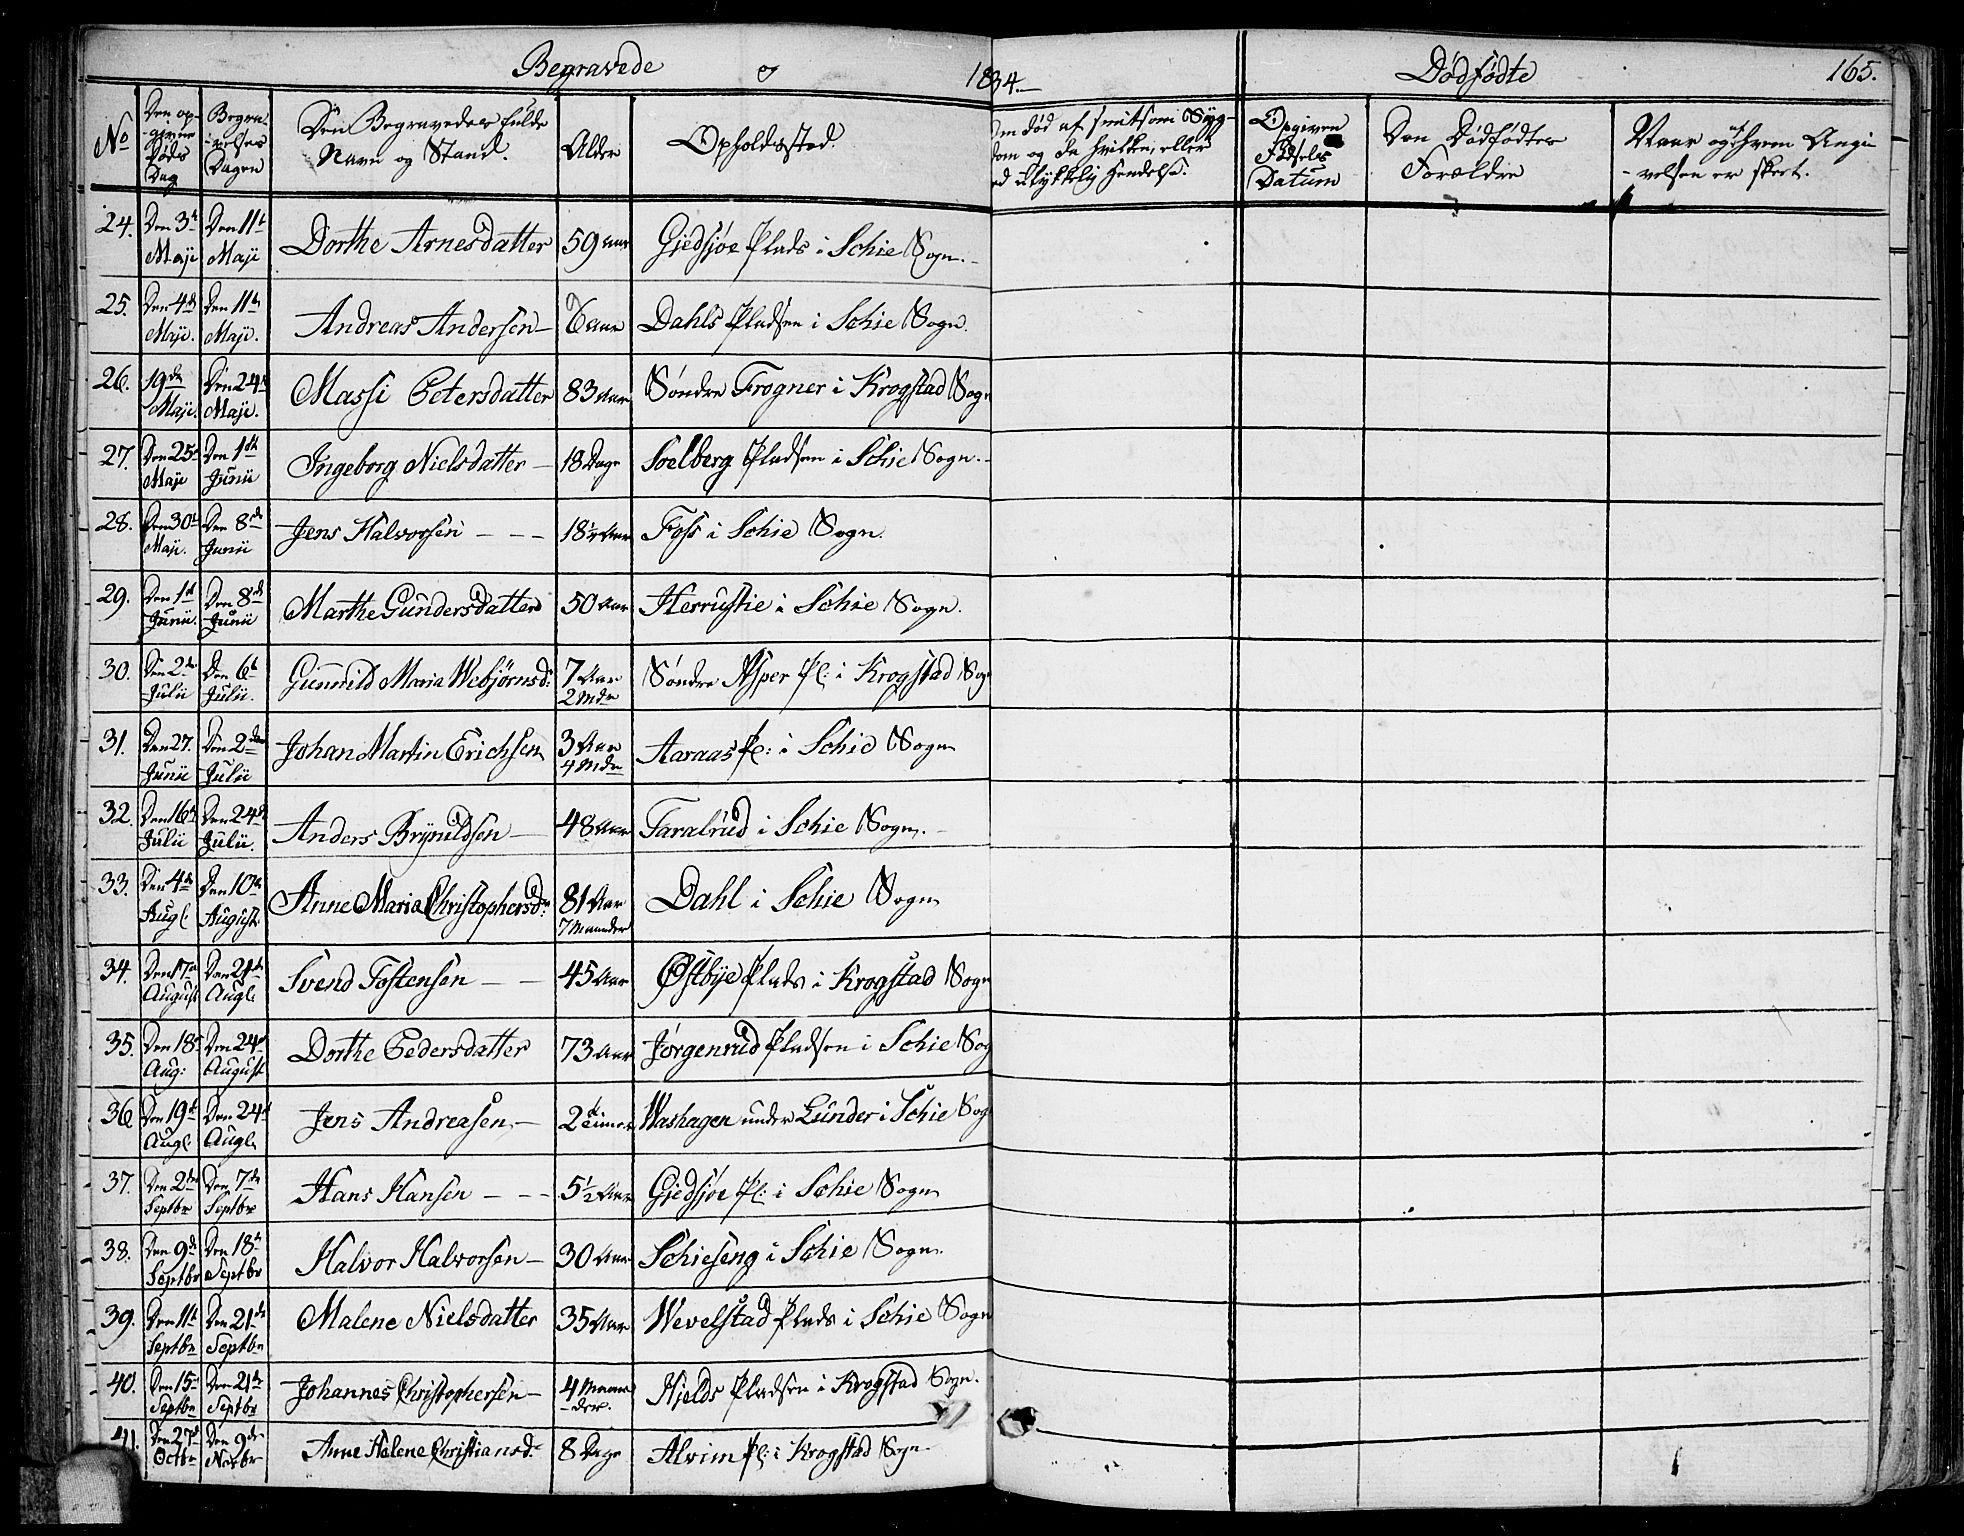 Begravede og 1834. Dødfødte 165.
No Den opgivne Døds Dag Begravelses Dagen Den Begravedes fulde Navn og Stand. Alder Opholdssted. Om død af smitsom Sygdom og da hvilken, eller ved ulykkelig Hendelse. Opgiven Fødsels Datum Den Dødfødtes Forældre Naar og at hvem Angivelsen er skeet.
24. Den 3die Maji Den 11te Maji Dorthe Arnesdatter 59 Aar Gjedsjøe Plads i Schie Sogn.
25. Den 4de Maji. Den 11te Maji. Andreas Andersen 6 Aar Dahls Pladsen i Schie Sogn.
26. 19de Maji. Den 24de Maji. Massi Petersdatter 83 Aar Søndre Frogner i Krogstad Sogn
27. Den 25de Maji Den 1ste Junii Ingeborg Nielsdatter 18 Dage Solberg Pladsen i Schie Sogn.
28. Den 30te Maji. Den 8de Junii Jens Halvorsen 18½ Aar Foss i Schie Sogn.
29. Den 1ste Junii. Den 8de Junii Marthe Gundersdatter 50 Aar Herrustie i Schie Sogn.
30. Den 2den Julii Den 6te Julii. Gunnild Maria Webjørnsd: 7 Aar 2 Mdr Søndre Asper Pl: i Krogstad Sogn
31. Den 27. Junii Den 2den Julii Johan Martin Erichsen 3 Aar 4 Mdr Aaraas Pl: i Schie Sogn
32. Den 16de Julii Den 24de Julii. Anders Brynildsen 48 Aar Taralrud i Schie Sogn.
33. Den 4de Augt Den 10de August Anne Maria Christophersdr: 81 Aar 7 Maaneder Dahl i Schie Sogn
34. Den 17de August Den 21de Augt Svend Tostensen 45 Aar Østbye Plads i Krogstad Sogn
35. Den 18de Aug: Den 24de August Dorthe Pedersdatter 73 Aar Jørgenrud Pladsen i Schie Sogn
36 Den 19de Augt: Den 24de Augt Jens Andreasen 2 Timer Washagen under Lunder i Schie Sogn
37. Den 2den Septbr Den 7de Septbr Hans Hansen 5½ Aar Gjedsjøe Pl: i Schie Sogn
38. Den 9de Septbr Den 18de Septbr Halvor Halvorsen 30 Aar Schieseng i Schie Sogn.
39. Den 11te Septbr Den 21de Septbr Malene Nielsdatter 35 Aar Wevelstad Plads i Schie Sogn
40. Den 15de Septbr Den 21de Septbr Johannes Christophersen 4 Maaneder. Hjelds Pladsen i Krogstad Sogn.
41. Den 27de Octbr Den 9de Novbr Anne Helene Christiansdr 8 Dage Alvim Pl: i Krogstad Sogn